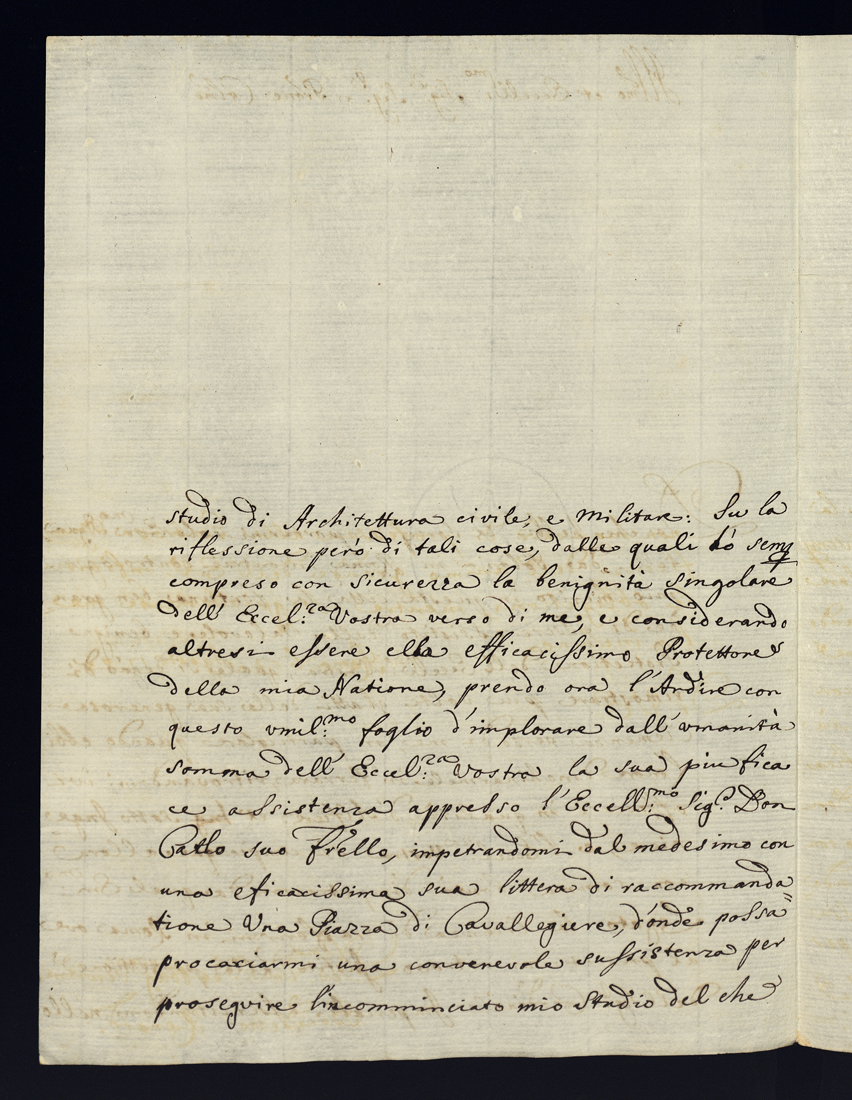 studio di Architettura civile, e Militare: Su la
riflessione però di tali cose, dalle quali hò semp
compreso con sicurezza la benignità singolare
dell' Eccel:za Vostra verso di me, e considerando
altresi essere ella efficacissimo Protettore
della mia Natione, prendo ora l'Ardire con
questo vmil:mo foglio d'implorare dall' vmanità
somma dell' Eccel:za Vostra la sua piu fica
ce assistenza appresso l'Eccell:mo Sig.r Don
Carlo suo Frello, impetrandomi dal medesimo con
una eficacissima sua littera di raccommanda
tione Una Piazza di Cavallegiere, d'onde possa=
procaciarmi una convenevole sussistenza per
proseguire l'incomminciato mio Studio del che